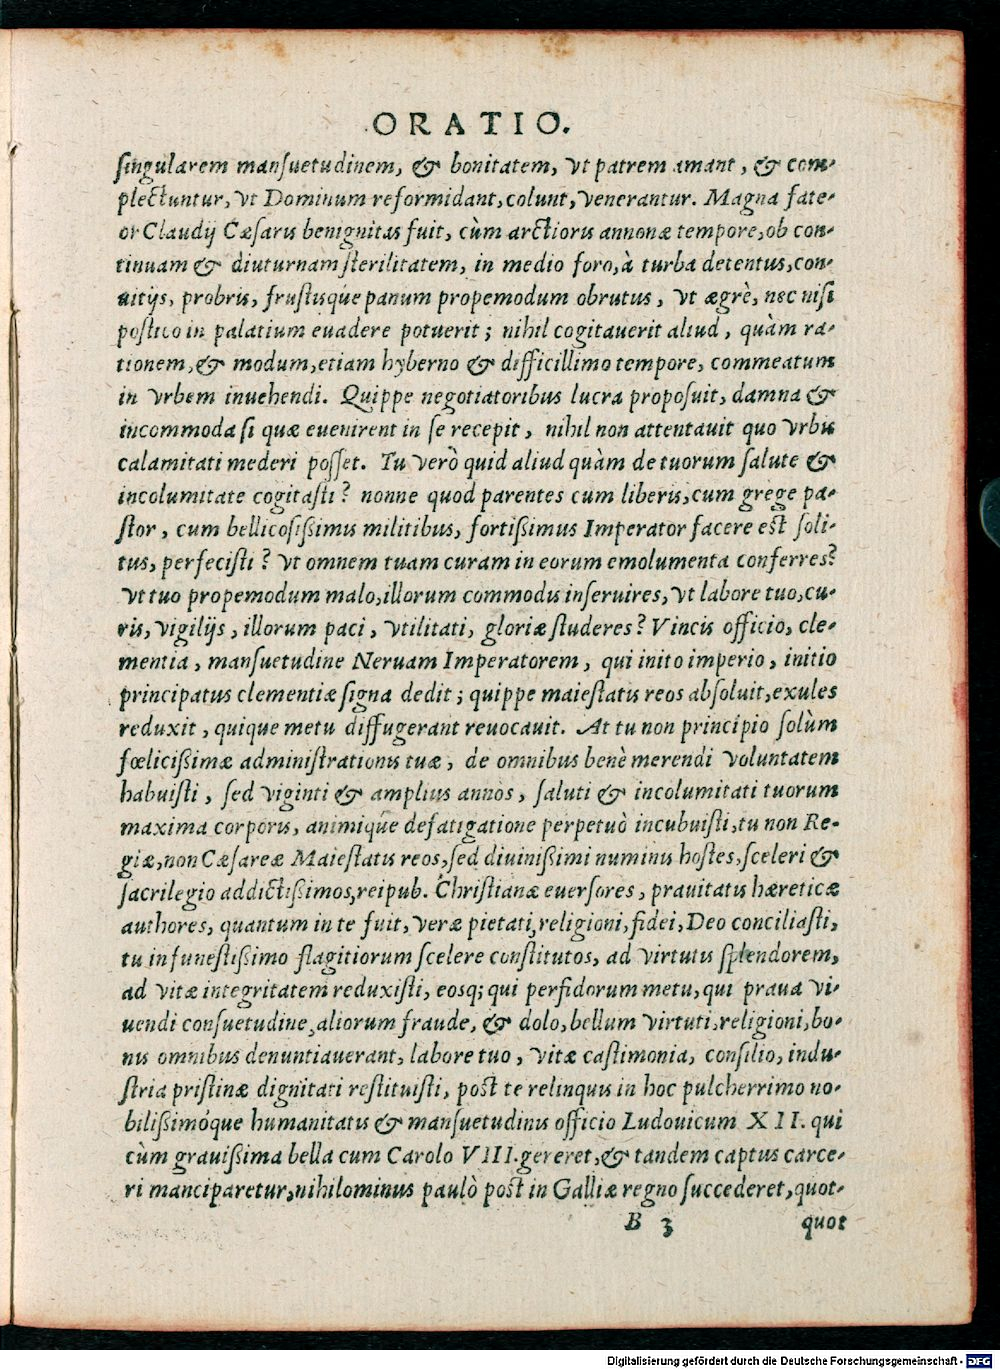 ORATIO.
singularem mansuetudinem, & bonitatem, vt patrem amant, & com-
plectuntur, vt Dominum reformidant, colunt, venerantur. Magna fate-
or Claudij Cæsaris benignitas fuit, cùm arctioris annonæ tempore, ob con-
tinuam & diuturnam sterilitatem, in medio foro, à turba detentus, con-
uitijs, probris, frustisq́ue panum propemodum obrutus, vt ægrè, nec nisi
postico in palatium euadere potuerit; nihil cogitauerit aliud, quàm ra-
tionem, & modum, etiam hyberno & difficillimo tempore, commeatum
in vrbem inuehendi. Quippe negotiatoribus lucra proposuit, damna &
incommoda si quæ euenirent in se recepit, nihil non attentauit quo vrbis
calamitati mederi posset. Tu verò quid aliud quàm de tuorum salute &
incolumitate cogitasti? nonne quod parentes cum liberis, cum grege pa-
stor, cum bellicosißimis militibus, fortißimus Imperator facere est soli-
tus, perfecisti? vt omnem tuam curam in eorum emolumenta conferres?
vt tuo propemodum malo, illorum commodis inseruires, vt labore tuo, cu-
ris, vigilijs, illorum paci, vtilitati, gloriæ studeres? Vincis officio, cle-
mentia, mansuetudine Neruam Imperatorem, qui inito imperio, initio
principatus clementiæ signa dedit; quippe maiestatis reos absoluit, exules
reduxit, quique metu diffugerant reuocauit. At tu non principio solùm
fœlicißimæ administrationis tuæ, de omnibus benè merendi voluntatem
habuisti, sed viginti & amplius annos, saluti & incolumitati tuorum
maxima corporis, animiq́ue defatigatione perpetuò incubuisti, tu non Re-
giæ, non Cæsareæ Maiestatis reos, sed diuinißimi numinis hostes, sceleri &
sacrilegio addictißimos, reipub. Christianæ euersores, prauitatis hæreticæ
authores, quantum in te fuit, veræ pietati, religioni, fidei, Deo conciliasti,
tu in funestißimo flagitiorum scelere constitutos, ad virtutis splendorem,
ad vitæ integritatem reduxisti, eosq; qui perfidorum metu, qui praua vi-
uendi consuetudine, aliorum fraude, & dolo, bellum virtuti, religioni, bo-
nis omnibus denuntiauerant, labore tuo, vitæ castimonia, consilio, indu-
stria pristinæ dignitati restituisti, post te relinquis in hoc pulcherrimo no-
bilißimóque humanitatis & mansuetudinis officio Ludouicum XII. qui
cùm grauißima bella cum Carolo VIII. gereret, & tandem captus carce-
ri manciparetur, nihilominus paulò post in Galliæ regno succederet, quot-
B 3 quot
Digitalisierung gefördert durch die Deutsche Forschungsgemeinschaft - DFG